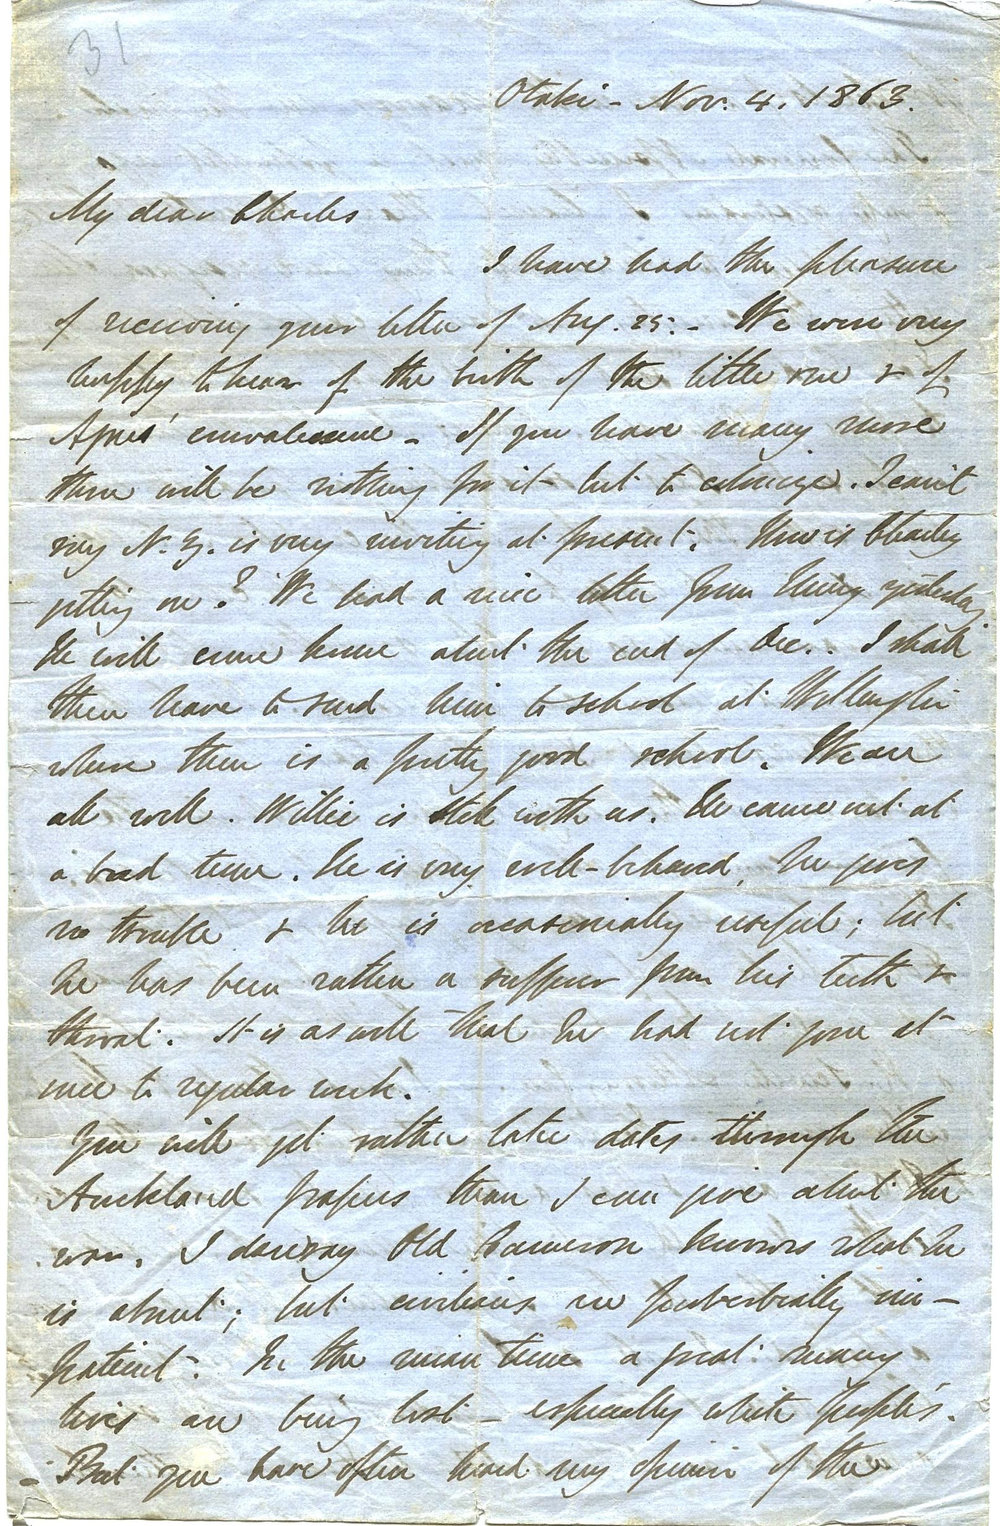 31
Otaki - Nov. 4. 1863.
My dear Charles
I have had the pleasure
of receiving your letter of Aug. 25. - We were very
happy to hear of the birth of the little one & of
Agnes' convalescence - If you have many more
there will be nothing for it but to colonize. I can't
say N. Z. is very inviting at present. How is Charley
getting on? We had a nice letter from Henry yesterday
He will come home about the end of Dec. . I shall
then have to send him to school at Wellington
where there is a pretty good school. We are
all well. Willie is still with us. He came out at
a bad time. He is very well-behaved, he gives
no trouble & he is occasionally useful; but
he has been rather a sufferer from his teeth &
throat. It is as well that he had not gone at
once to regular work.
You will get rather later dates through the
Auckland papers than I can give about the
war. I daresay Old Cameron knows what he
is about; but civilians are proverbially im-
patient. In the mean time a great many
lives are being lost - especially white people's.
- But you have often heard my opinion of the